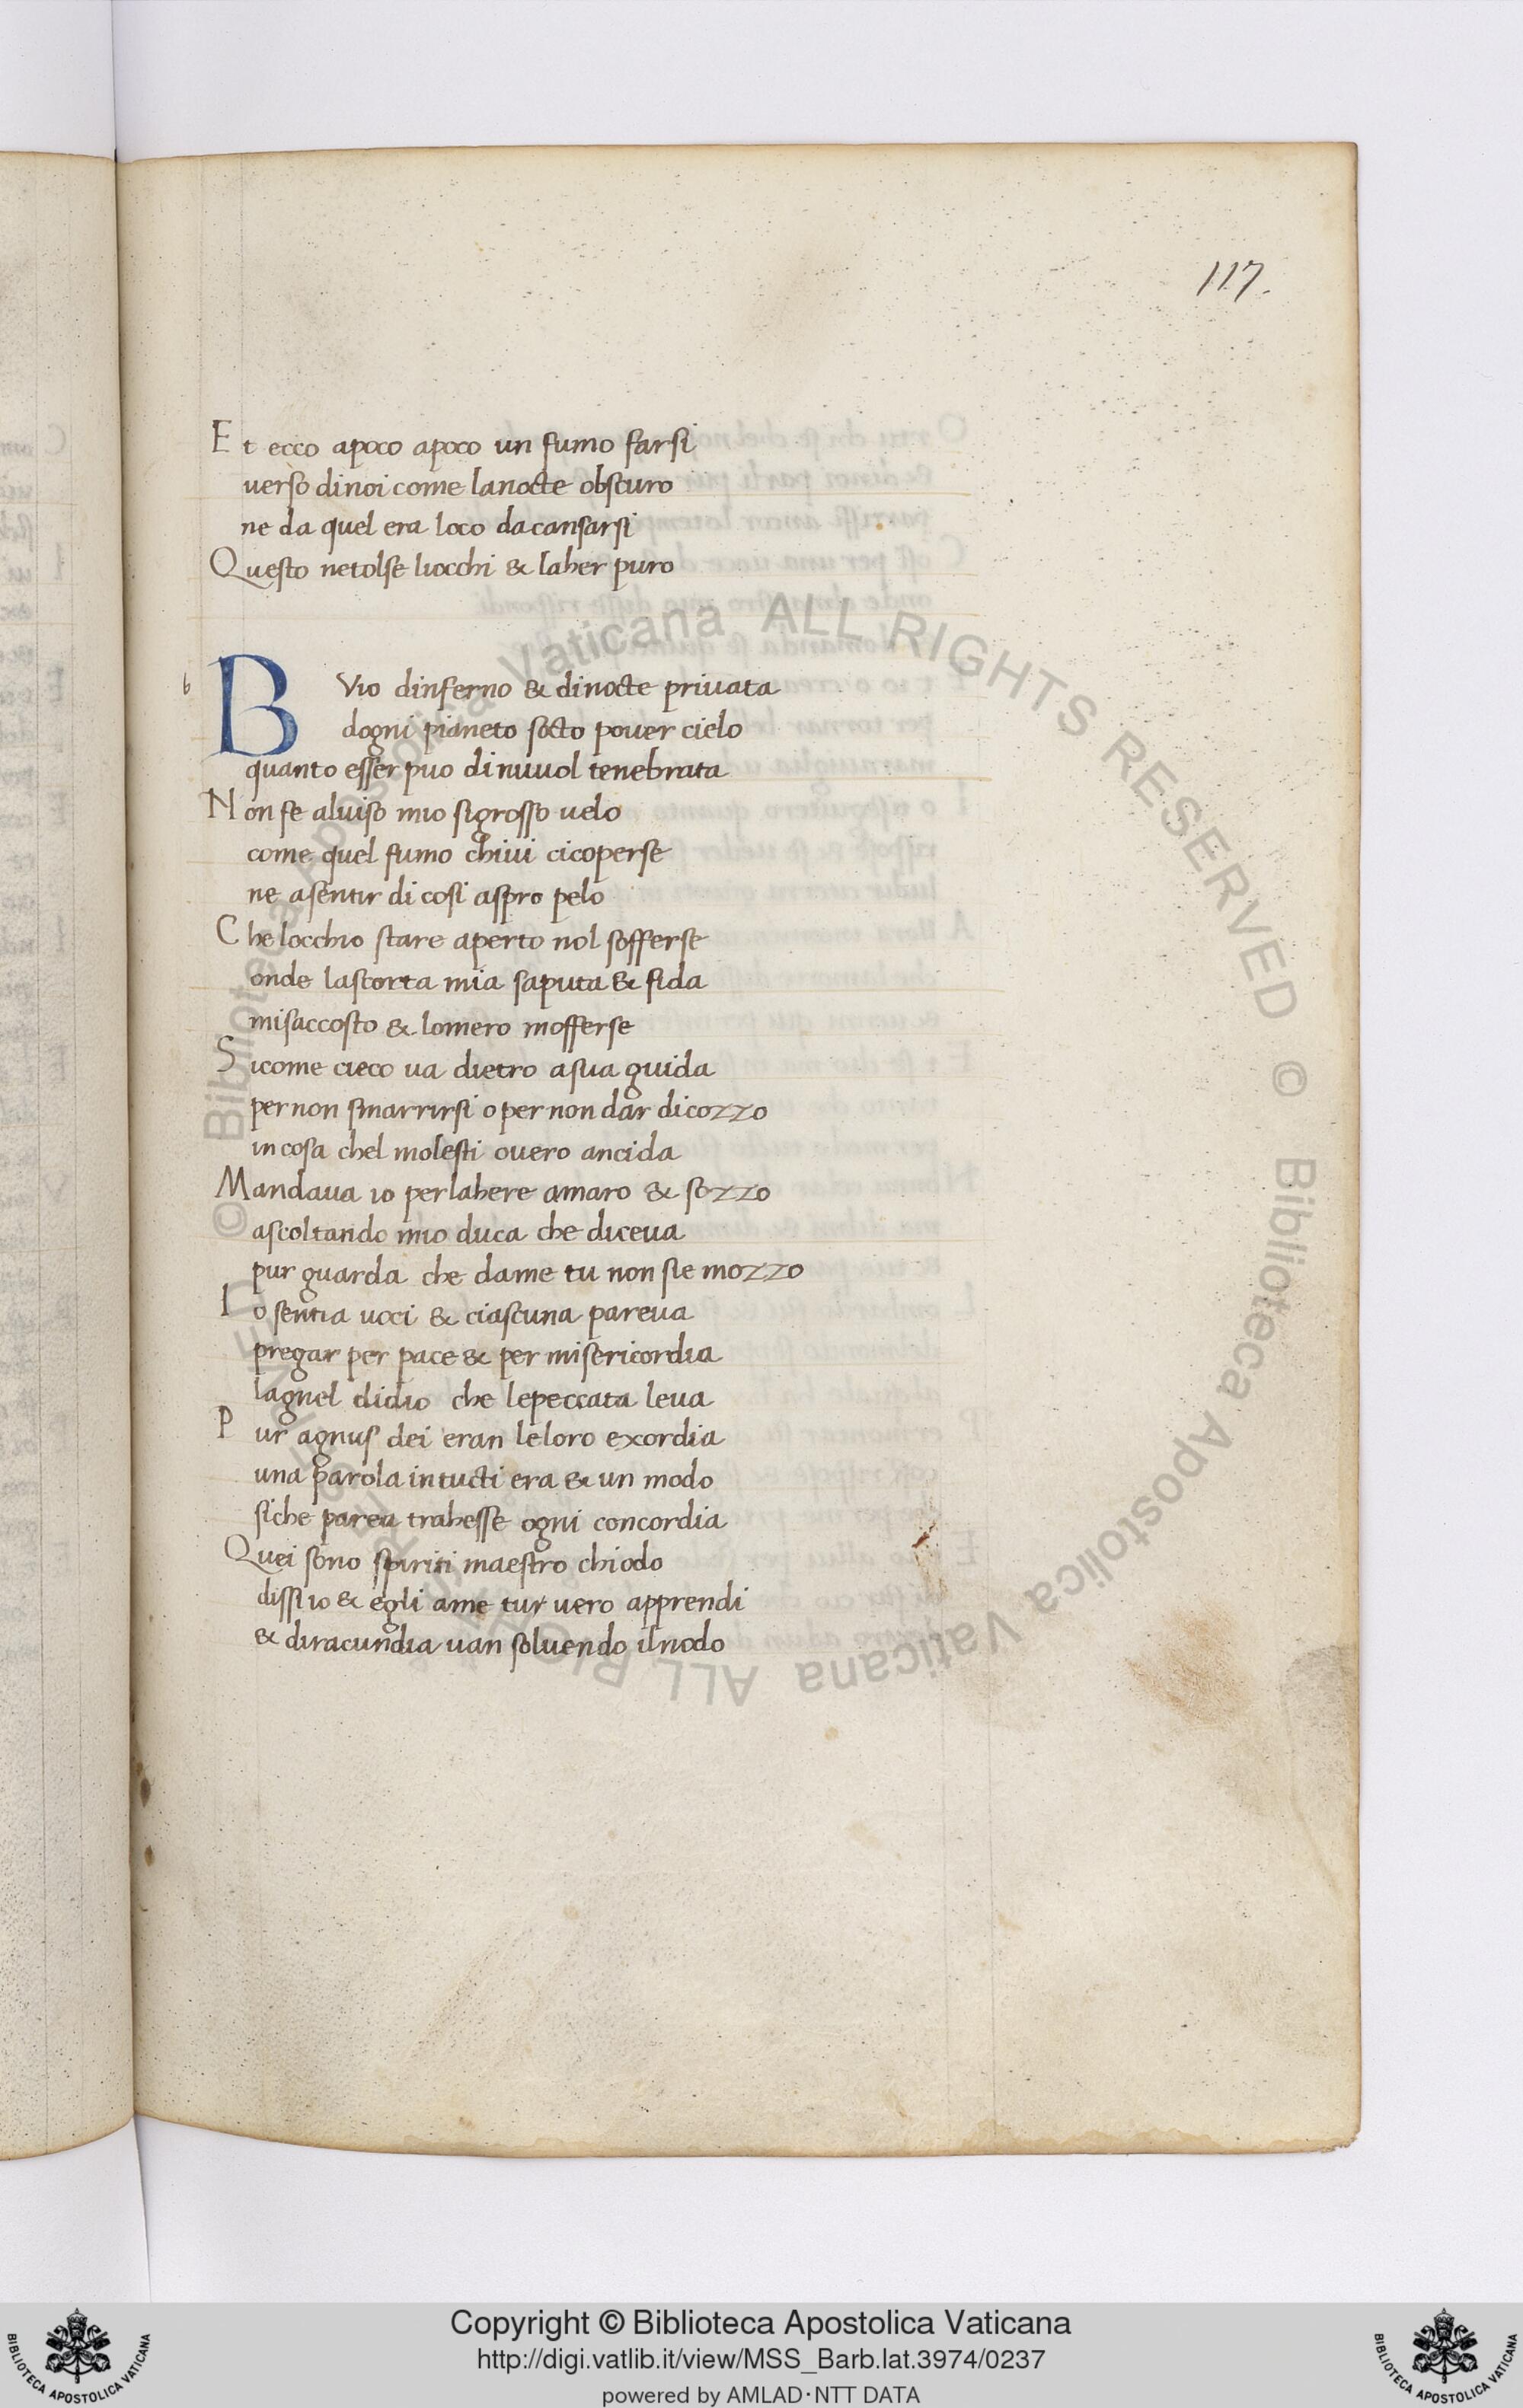 117.
Et ecco apoco apoco un fumo farsi
uerso dinoi come lanocte obscuro
ne da quel era loco dacansarsi
Questo netolse liocchi & laher puro
b
BVio dinferno & dinocte priuata
dogni pianeto socto pouer cielo
quanto esser puo dinuuol tenebrata
Non fe aluiso mio sigrosso uelo
come quel fumo chiui cicoperse
ne asentir di cosi aspro pelo
Che locchio stare aperto nol sofferse
onde lascorta mia saputa & fida
misaccosto & lomero mofferse
Sicome cieco ua dietro asua guida
per non smarrirsi o per non dar dicozzo
in cosa chel molesti ouero ancida
Mandaua io perlahere amaro & sozzo
ascoltando mio duca che diceua
pur guarda che dame tu non sie mozzo
Io sentia uoci & ciascuna pareua
pregar per pace & per misericordia
lagnel didio che lepeccata leua
Pur agnus dei eran leloro exordia
una parola intucti era & un modo
siche parea trahesse ogni concordia
Quei sono spiriti maestro chiodo
dissi io & egli ame tur uero apprendi
& diracundia uan soluendo ilnodo
© Biblioteca Apostolica Vaticana ALL RIGHTS RESERVED © Biblioteca Apostolica Vaticana ALL RIGHTS RESERVED
Copyright © Biblioteca Apostolica Vaticana
http://digi.vatlib.it/view/MSS_Barb.lat.3974/0237
powered by AMLAD·NTT DATA
BIBLIOTECA APOSTOLICA VATICANA
BIBLIOTECA APOSTOLICA VATICANA